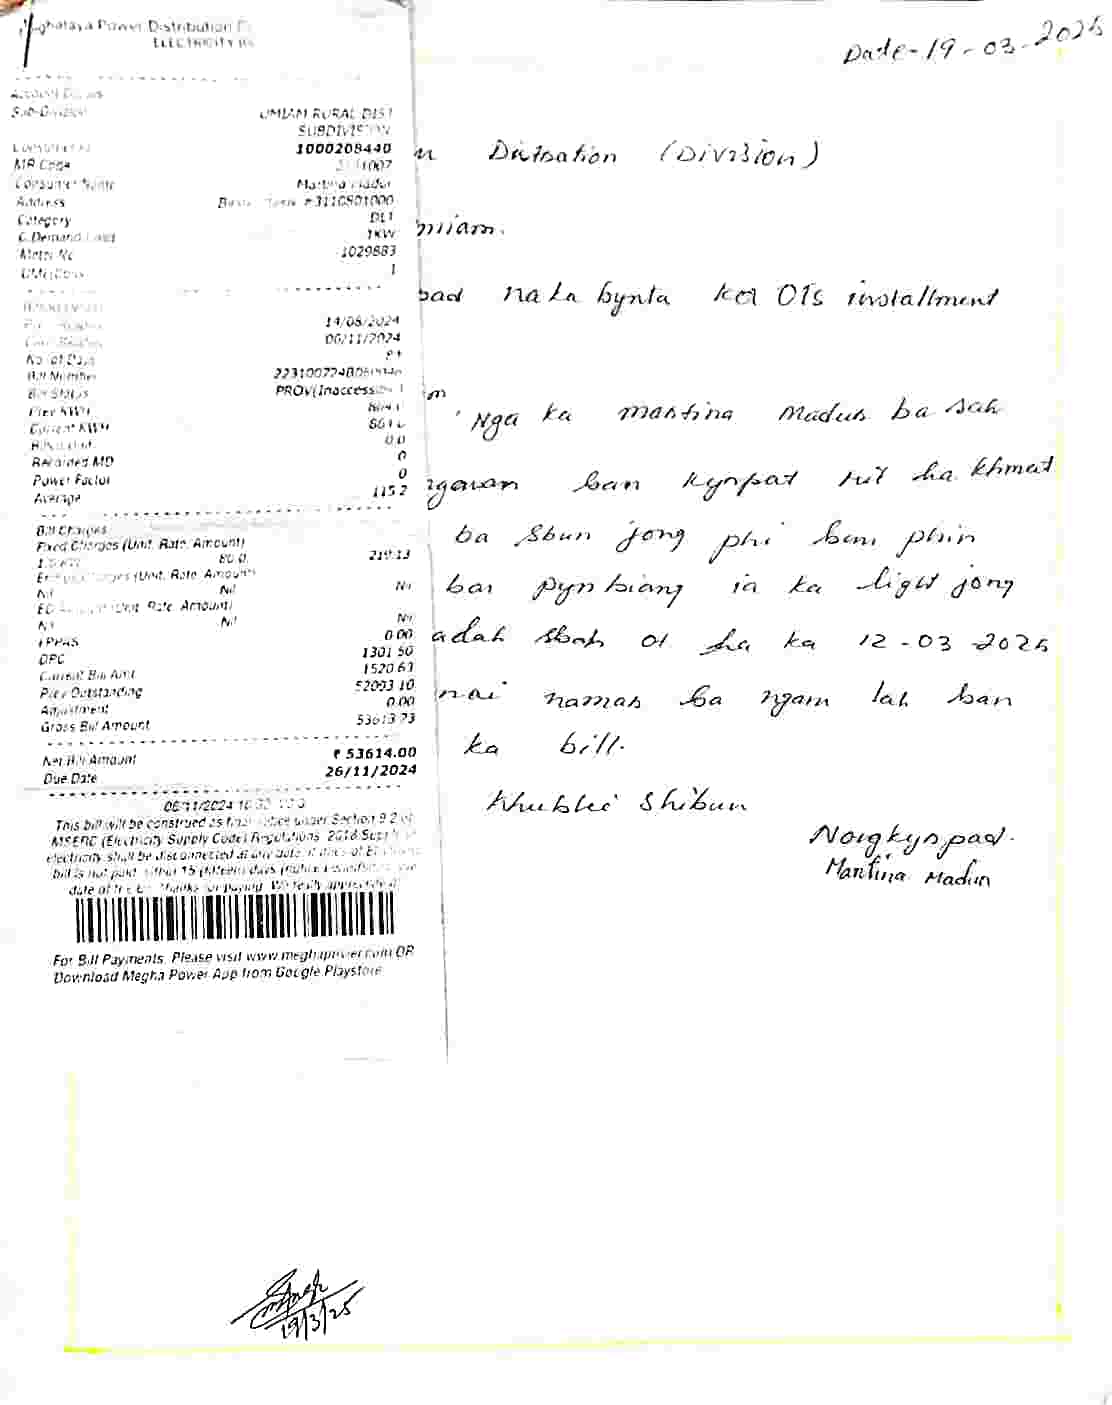 Meghalaya Power Distribution
ELECTRICITY
Account Details
Sub-Division UMIAM RURAL DIST
SUBDIVISION
1000208440
MR Code
Consumer Name Martina Madur
Address #3110801000
Category DLT
C.Demand Load 1KW
Meter No 1029883
1
14/08/2024
06/11/2024
No of Days
Bill Number
Bill Status PROV(Inaccessible
Prev KWH
Current KWH
0.0
Recorded MD 0
Power Factor 0
Average 115.2
Bill Charges
Fixed Charges (Unit, Rate, Amount)
80.0 219.13
Energy Charges (Unit, Rate, Amount)
Nil Nil Nil
ED (Unit, Rate, Amount)
Nil Nil Nil
FPPAS 0.00
DPC 1301.50
Current Bill Amt 1520.63
Prev Outstanding 52093.10
Adjustment 0.00
Gross Bill Amount 53613.73
Net Bill Amount ₹ 53614.00
Due Date 26/11/2024
06/11/2024
This bill will be construed as final notice under Section 9.2 of
MSERC (Electricity Supply Code) Regulations, 2018. Supply of
electricity shall be disconnected at any date if dues of Electricity
bill is not paid within 15 (fifteen) days
date of the bill. Thanks for paying. We really appreciate it
For Bill Payments, Please visit www.meghapower.com OR
Download Megha Power App from Google Playstore
Date-19-03-2025
(Division)
miam.
pad na ka bynta ka OTS installment
Nga ka Martina Madur ba sah
ban kynpad ha khmat
ba sbun jong phi ban phin
ban pynbiang ia ka light jong
adah sbah ot ha ka 12-03-2025
nai namar ba ngam lah ban
ka bill.
Khublei Shibun
Nongkyrpad.
Martina Madur
19/3/25